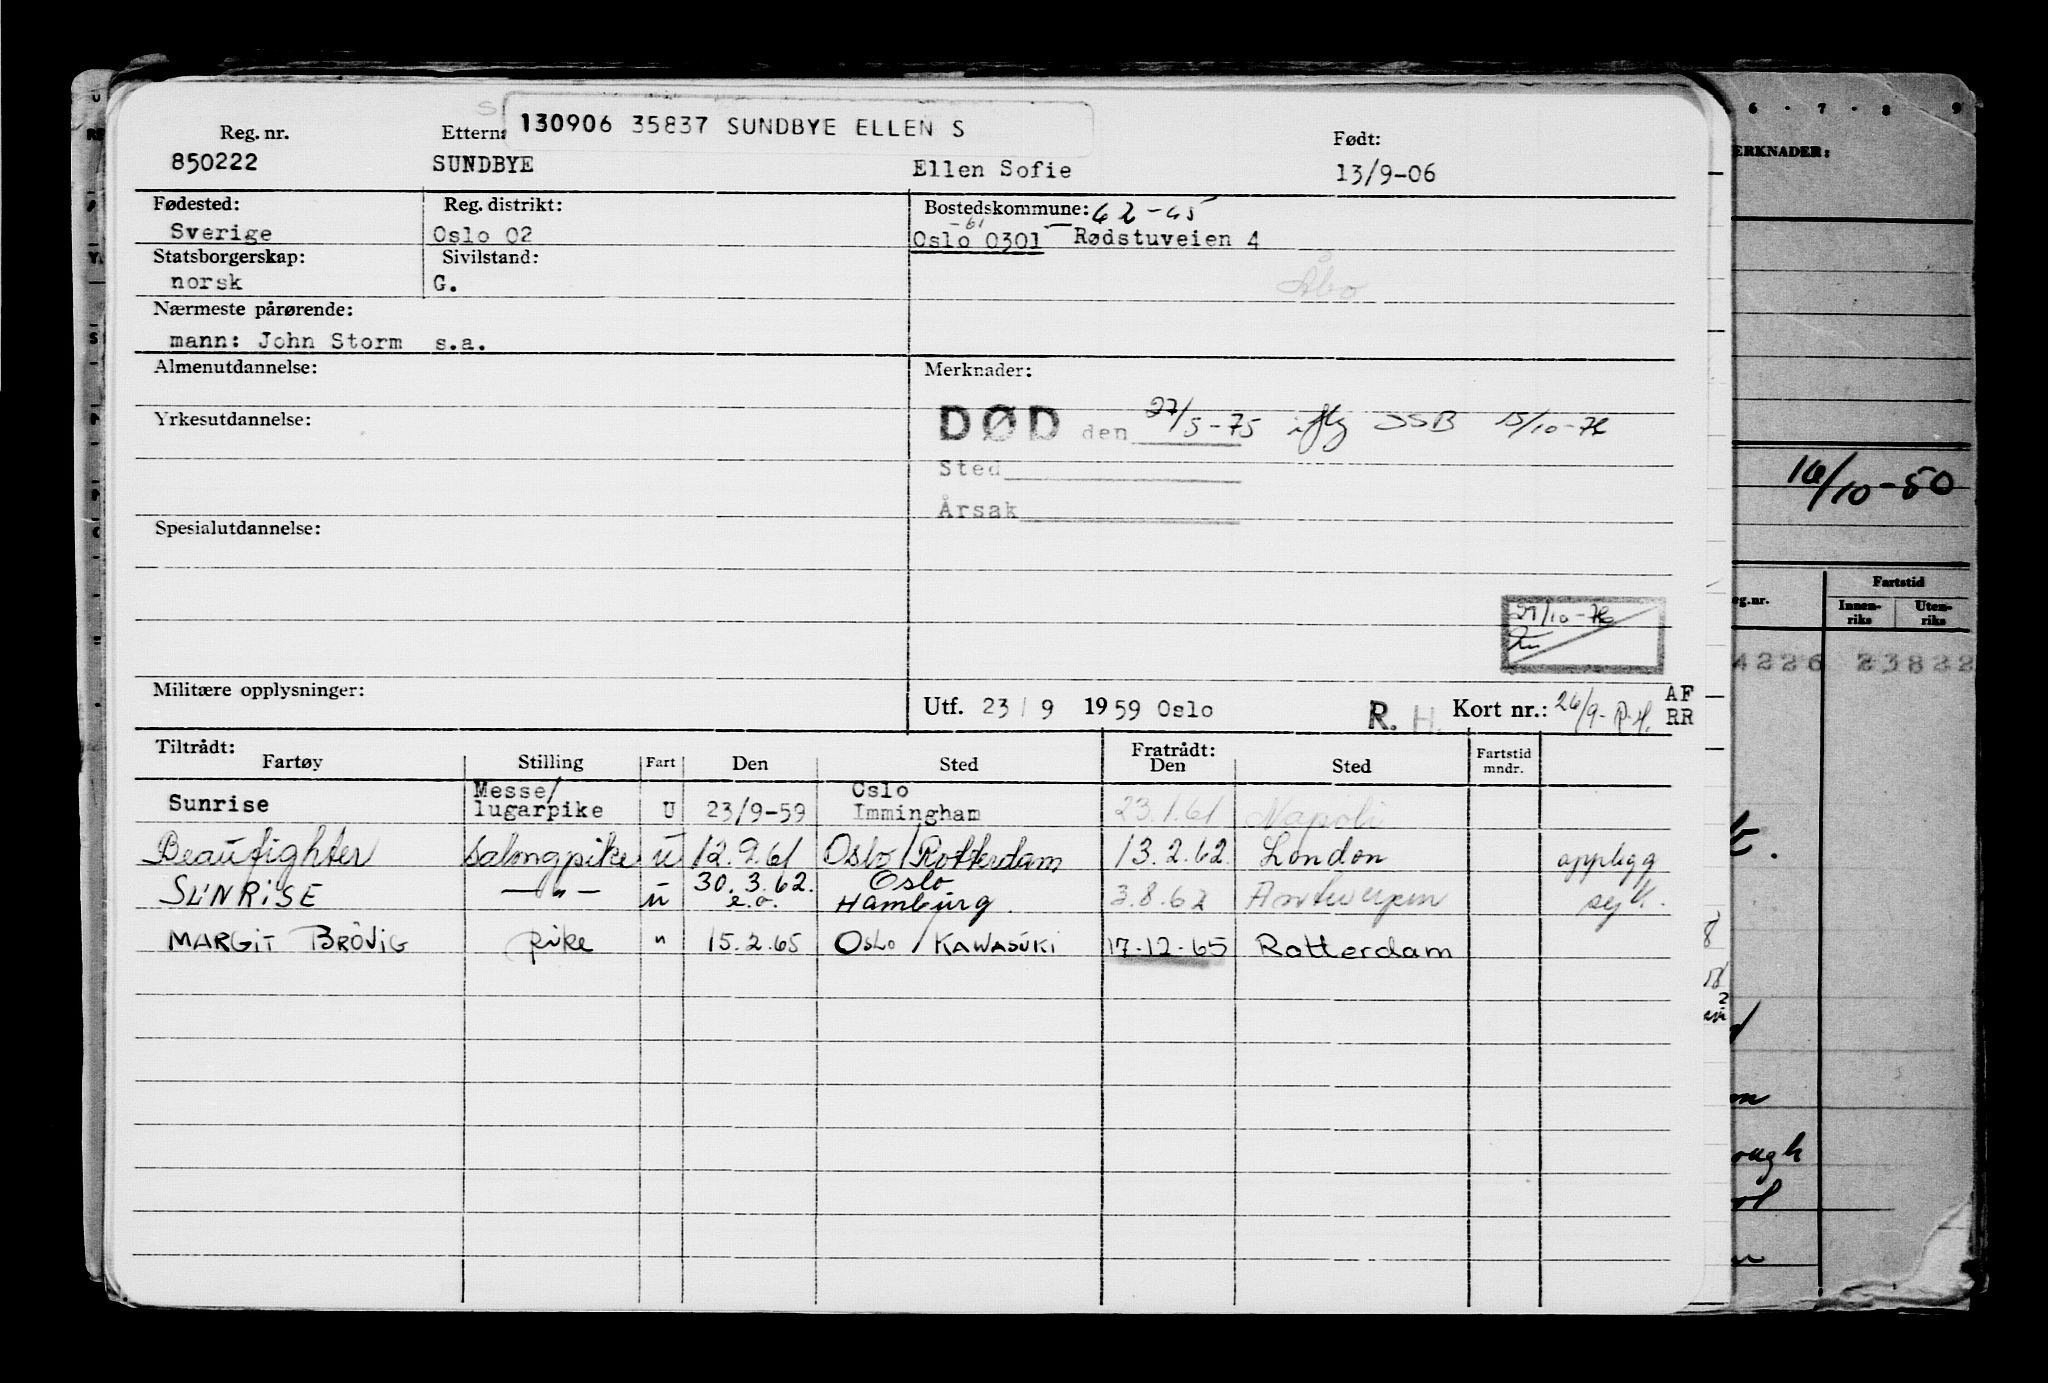 130906 35837 SUNDBYE ELLEN S
Reg. nr. Ettern: Født:
850222 SUNDBYE Ellen Sofie 13/9-06
Fødested: Reg. distrikt: Bostedskommune: 62-65
-61
Sverige Oslo 02 Oslo 0301 Rødstuveien 4
Statsborgerskap: Sivilstand:
norsk G. Åbo
Nærmeste pårørende:
mann: John Storm s.a.
Almenutdannelse: Merknader:
Yrkesutdannelse: DØD den 27/5-75 iflg SSB 15/10-76
Sted
Årsak
Spesialutdannelse:
29/10-76
Militære opplysninger: Utf. 23/9 1959 Oslo R. H. Kort nr.: 26/9- R.H. AF
RR
Tiltrådt: Fratrådt:
Fartøy Stilling Fart Den Sted Den Sted Fartstid
mndr.
Messe/ Oslo
Sunrise lugarpike U 23/9-59 Immingham 23.1.61 Napoli
Beaufighter salongpike u 12.9.61 Oslo/Rotterdam 13.2.62 London opplegg
30.3.62. Oslo
SUNRISE —"— u e.o. Hamburg. 3.8.62 Antwerpen
MARGIT BRØVIG pike " 15.2.65 OSLO / KAWASUKI 17-12-65 Rotterdam
6 · 7 · 8 9
ERKNADER:
16/10-50
Fartstid
eg.nr. Innen-
riks Uten-
riks
4226 23822
ough